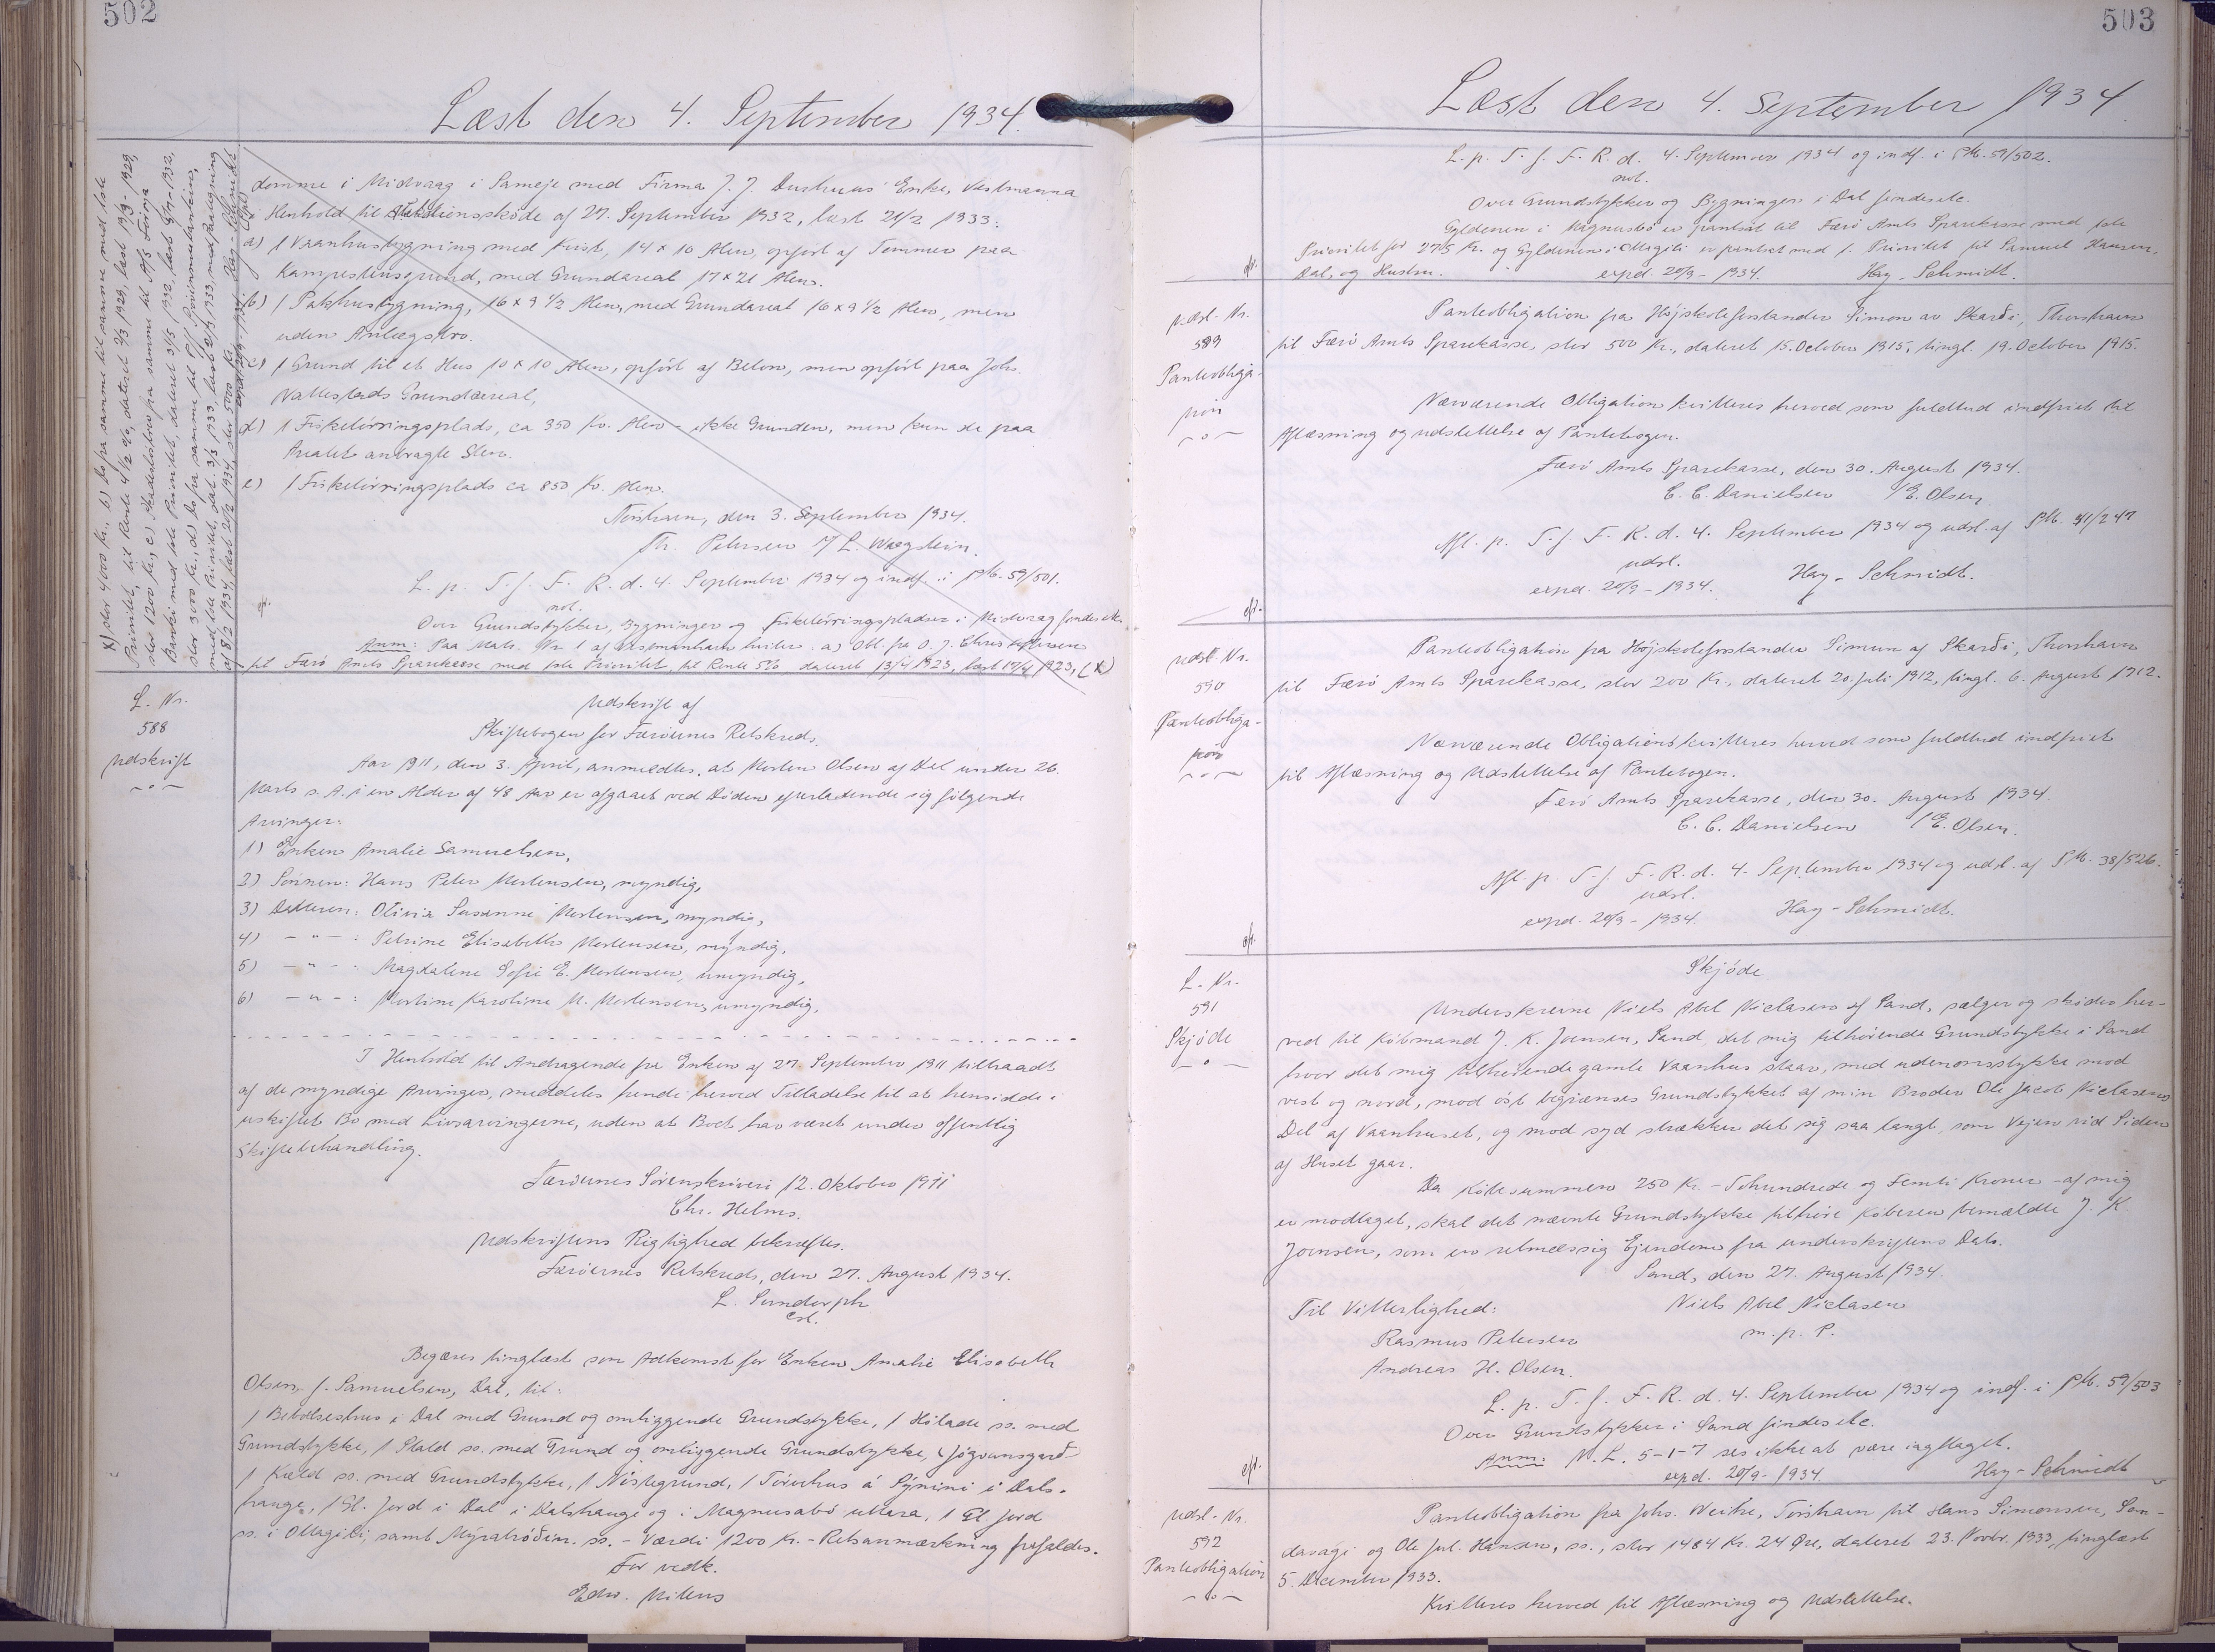 502
Læst den 4. September 1934.
domme i Midvaag i Sameje med Firma J. J. Durhuus' Enke, Vestmanna
i Henhold til Auktionsskøde af 27. September 1932, læst 21/2 1933:
a) 1 Vaanhusbygning med Kvist, 14 x 10 Alen, opført af Tømmer paa
Kampestensgrund, med Grundareal 17 x 21 Alen.
b) 1 Pakhusbygning, 16 x 9 1/2 Alen, med Grundareal 16 x 9 1/2 Alen, men
uden Anlægsbro.
c) 1 Grund til et Hus 10 x 10 Alen, opført af Beton, men opført paa Johs.
Vattestads Grundareal,
d) 1 Fisketørringsplads, ca 350 Kv. Alen - ikke Grunden, men kun de paa
Arealet anbragte Sten.
e) 1 Fisketørringsplads ca 850 Kv. Alen.
Tórshavn, den 3. September 1934.
Th. Petersen / L. Waagstein.
L. p. T. f. F. R. d. 4. September 1934 og indf. i PB. 59/501.
not.
Over Grundstykker, Bygninger og Fisketørringspladser i Midvaag findes ikke
Anm: Paa Matr. Nr. 1 af Vestmanhavn hviler: a) Obl. fra O. J.
til Færø Amts Sparekasse med 1ste Prioritet, til Rente 5% dateret 13/4 1923, læst 17/4 1923, (x)
x) stor 4000 Kr., b) do fra samme til samme med 1ste
Prioritet, til Rente 4 1/2 %, dateret 2/3 1929, læst 19/3 - 1929,
stor 1200 Kr., c) Skadesløsbrev fra samme til A/S Føroya
Banki med 1ste Prioritet, dateret 3/5 1932, læst 5/7 - 1932,
stor 3000 Kr., d) do fra samme til
med 1ste Prioritet, dat. 3/3 1933, læst 21/3 1933, med Paategning
af 8/2 1934, læst 20/2 1934, stor 5000 Kr. Hay - Schmidt
L. Nr.
588
Udskrift
Udskrift af
Skiftebogen for Færøernes Retskreds.
Aar 1911, den 3. April, anmeldtes, at Morten Olsen af Dal under 26.
Marts s. A. i en Alder af 48 Aar er afgaaet ved Døden efterladende sig følgende
Arvinger:
1) Enken Amalie Samuelsen,
2) Sønnen: Hans Peter Mortensen, myndig,
3) Datteren: Olivia Susanne Mortensen, myndig,
4) - " - : Petrine Elisabeth Mortensen, myndig,
5) - " - : Magdalene Sofie E. Mortensen, umyndig,
6) - " - : Mortine Karoline M. Mortensen, umyndig.
I Henhold til Andragende fra Enken af 27. September 1911 tiltraadt
af de myndige Arvinger, meddeles hende herved Tilladelse til at hensidde i
uskiftet Bo med Livsarvingerne, uden at Boet har været under offentlig
Skiftebehandling.
Færøernes Sorenskriveri 12. Oktober 1911
Chr. Helms.
Udskriftens Rigtighed bekræftes.
Færøernes Retskreds, den 27. August 1934.
L. Sundorph
cst.
Begæres tinglæst som Adkomst for Enken Amalie Elisabeth
Olsen, f. Samuelsen, Dal, til:
1 Beboelseshus i Dal med Grund og omliggende Grundstykke, 1 Hölade ss. med
Grundstykke, 1 Stald ss. med Grund og omliggende Grundstykke, i Jógvansgarð
1 Kæld ss. med Grundstykke, 1 Neystegrund, 1 Tørvehus á Sýnini i Dals-
hauge, 1 Gl. Jord i Dal i Dalshauge og i Magnusabø uttara, 1 Gl Jord
ss. i Ottagili, samt Mýratrøðin. ss. - Værdi 1200 Kr. - Retsanmærkning frafaldes.
For vedk.
Edw. Mitens
503
Læst den 4. September 1934
L. p. T. f. F. R. d. 4. September 1934 og indf. i PB. 59/502.
not.
Over Grundstykker og Bygninger i Dal findes ikke.
Gyldenen i Magnusbø er pantsat til Færø Amts Sparekasse med 1ste
Prioritet for 275 Kr. og Gyldenen i Ottagili er pantsat med 1. Prioritet til Samuel Hansen,
Dal, og Hustru. exped. 20/9 - 1934. Hay - Schmidt.
Udsl. Nr.
589
Pantobliga-
tion
Panteobligation fra Højskoleforstander Símon av Skarði, Thorshavn
til Færø Amts Sparekasse, stor 500 Kr., dateret 15. October 1915, tingl. 19. October 1915.
Nærværende Obligation kvitteres herved som fuldtud indfriet til
Aflæsning og udslettelse af Pantebogen.
Færø Amts Sparekasse, den 30. August 1934.
C. C. Danielsen / E. Olsen.
Afl. p. T. f. F. R. d. 4. September 1934 og udsl. af PB. 41/247
udsl.
exped. 20/9 - 1934. Hay - Schmidt.
Udsl. Nr.
590
Pantobliga-
tion
Panteobligation fra Højskoleforstander Símun af Skarði, Thorshavn
til Færø Amts Sparekasse, stor 200 Kr., dateret 20. Juli 1912, tingl. 6. August 1912.
Nærværende Obligation kvitteres herved som fuldtud indfriet
til Aflæsning og Udslettelse af Pantebogen.
Færø Amts Sparekasse, den 30. August 1934.
C. C. Danielsen / E. Olsen.
Afl. p. T. f. F. R. d. 4. September 1934 og udsl. af PB. 38/526.
udsl.
exped. 20/9 - 1934. Hay - Schmidt.
L. Nr.
591
Skjøde
Skjøde
Underskrevne Niels Abel Niclasen af Sand, sælger og skøder her-
ved til Købmand J. K. Joensen, Sand, det mig tilhørende Grundstykke i Sand
hvor det mig tilhørende gamle Vaanhus staar, med udenomsstykke mod
vest og nord, mod öst begrænses Grundstykket af min Broder Ole Jacob Niclasens
Del af Vaanhuset, og mod syd strækker det sig saa langt, som Vejen ved Siden
af Huset gaar.
Da Købesummen 250 Kr. - Tohundrede og Femti Kroner - af mig
er modtaget, skal det nævnte Grundstykke tilhøre Køberen bemældte J. K.
Joensen, som en retmæssig Ejendom fra underskriftens Dato.
Sand, den 27. August 1934.
Til Vitterlighed: Niels Abel Niclasen
Rasmus Petersen m. p. P.
Andreas H. Olsen.
L. p. T. f. F. R. d. 4. September 1934 og indf. i PB. 59/503
Over Grundstykker i Sand findes ikke.
Anm: N. L. 5-1-7 ses ikke at være iagttaget.
exped. 20/9 - 1934. Hay - Schmidt
Udsl. Nr.
592
Panteobligation
Panteobligation fra Johs. Weihe, Tórshavn til Hans Simonsen, San-
davági og Ole Jul. Hansen, ss., stor 1484 Kr. 24 Øre, dateret 23. Novbr. 1933, tinglæst
5. December 1933.
Kvitteres herved til Aflæsning og Udslettelse.